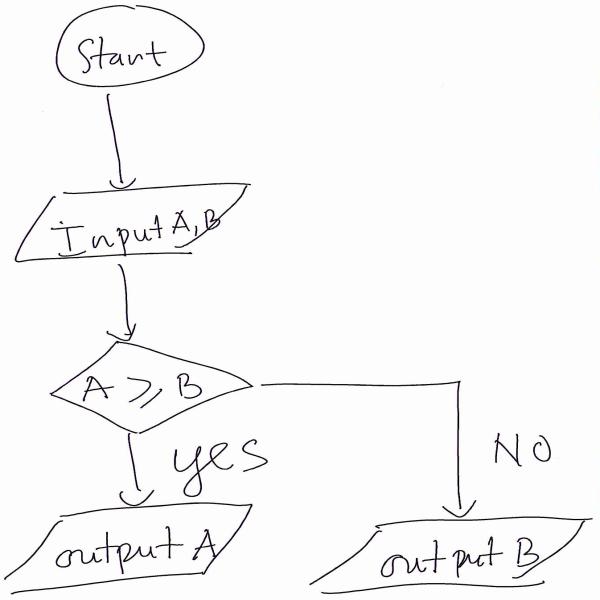 Start
Input A, B
A ⩾ B
yes
NO
output A
output B